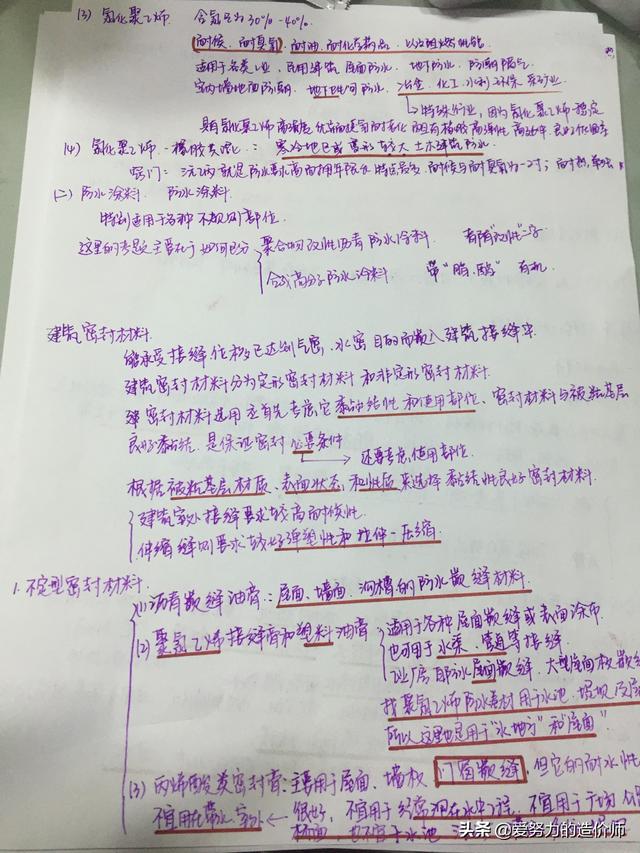 (3) 氯化聚乙烯. 含氯量为30%-40%.
耐候、耐臭氧, 耐油、耐化学药品, 以及阻燃性能
适用于各类工业、民用建筑 屋面防水、地下防水、防潮隔气
室内墙地面防潮、地下卫生间防水、冶金、化工、水利、环保、采矿业
特殊行业, 因为氯化聚乙烯 稳定
(4) 氯化聚乙烯-橡胶共混: 寒冷地区或变形较大土木建筑防水
(二) 防水涂料. 防水涂料.
特别适用于各种不规则部位.
这里的考题主要在于如何区分
聚合物改性沥青防水涂料 都有"改性"二字
合成高分子防水涂料 带"脂、酯" 有机
建筑密封材料.
能承受接缝位移已达到气密、水密目的而嵌入建筑接缝中.
建筑密封材料分为定形密封材料和非定形密封材料.
密封材料选用应首先考虑它黏结性和使用部位、密封材料与被黏基层
良好黏结, 是保证密封必要条件
还要考虑使用部位.
根据被粘基层材质、表面状态和性质来选择黏结性良好密封材料.
建筑室外接缝要求较高耐候性
伸缩缝则要求较好弹塑性和拉伸-压缩
1. 不定型密封材料.
(1) 沥青嵌缝油膏: 屋面、墙面、沟槽的防水嵌缝材料.
(2) 聚氯乙烯接缝膏和塑料油膏
适用于各种屋面嵌缝或表面涂布
也可用于水渠、管道等接缝.
工业厂房自防水屋面嵌缝. 大型屋面板嵌缝
找聚氯乙烯防水卷材用于水池、堤坝
所以这里也是用于"水地方"和"屋面"
(3) 丙烯酸类密封膏: 主要用于屋面、墙板 门窗嵌缝, 但它的耐水性
不宜用在带水、室外 ← 很好, 不宜用于经常泡在水中工程, 不宜用于
头条 @爱努力的造价师